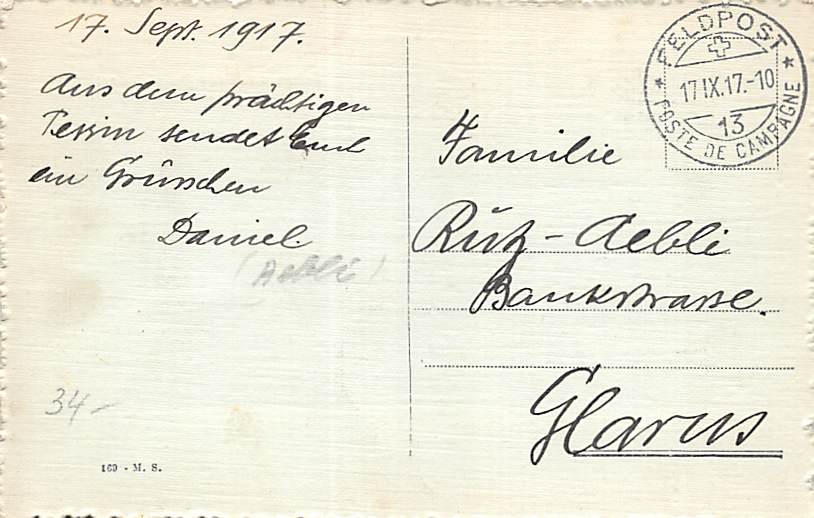 17. Sept. 1917.
Aus dem prächtigen
Tessin sendet Euch
ein Grüsschen
Daniel.
(Aebli)
34-
169 - M. S.
FELDPOST
17.IX.17.-10
13
POSTE DE CAMPAGNE
Familie
Rütz-Aebli
Bankstrasse.
Glarus